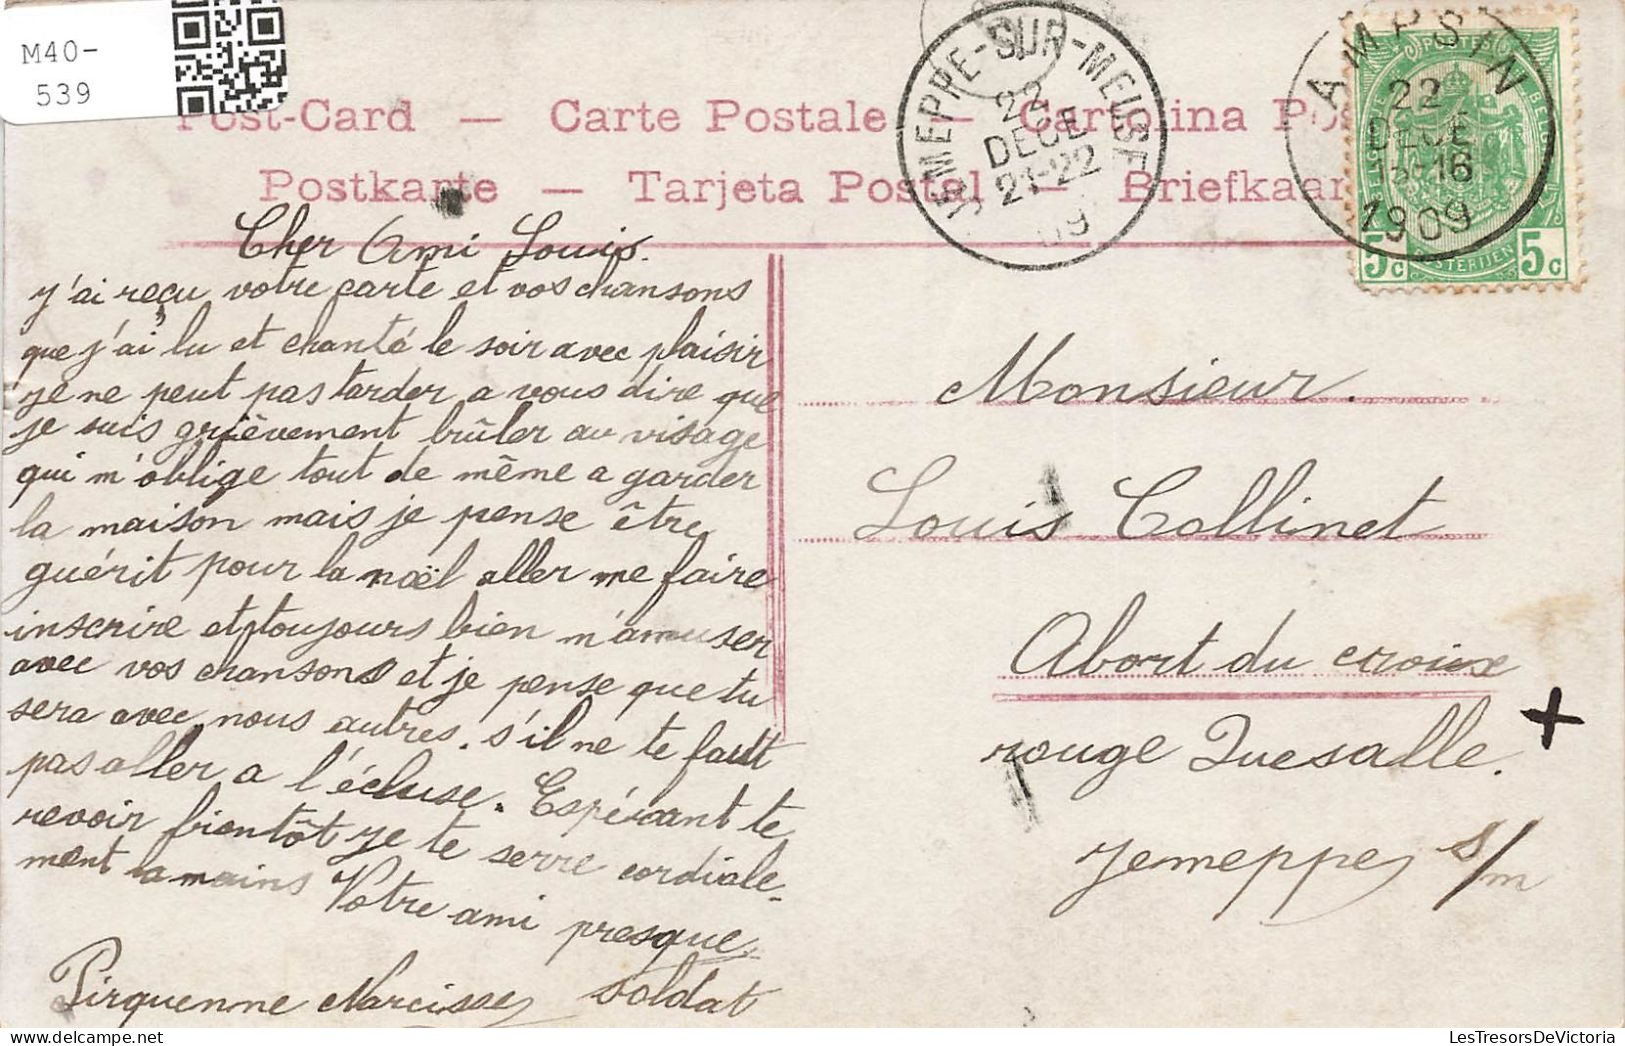 M40-
539
Post-Card — Carte Postale — Cartolina Pos
Postkarte — Tarjeta Postal — Briefkaar
JEMEPPE-SUR-MEUSE
22
DECE
21-22
09
AMPSIN
22
DECE
16
1909
POSTES
5c
5c
Cher Ami Louis.
J'ai reçu votre carte et vos chansons
que j'ai lu et chanté le soir avec plaisir
je ne peut pas tarder a vous dire que
je suis grièvement brûler au visage
qui m'oblige tout de même a garder
la maison mais je pense être
guérit pour la noël aller me faire
inscrire et toujours bien m'amuser
avec vos chansons et je pense que tu
sera avec nous autres. s'il ne te fault
pas aller a l'écluse. Espérant te
revoir bientôt je te serre cordiale-
ment la mains Votre ami presque
Pirquenne Narcisse soldat
Monsieur.
Louis Collinet
Abort du croix
rouge Quesalle.
Jemeppe s/m
LesTresorsDeVictoria